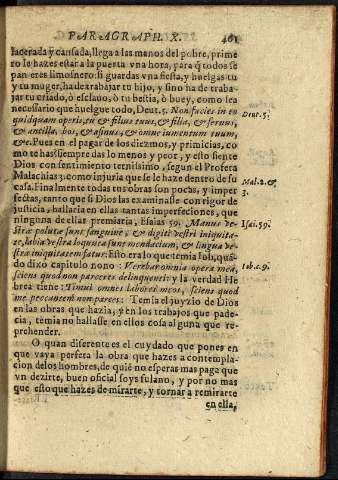 PARAGRAPH. X. 461
lacerada y cansada, llega a las manos del pobre, prime
ro le hazes estar a la puerta vna hora, para q̃ todos se
pan eres limosnero: si guardas vna fiesta, y huelgas tu
y tu muger, ha de trabajar tu hijo, y sino ha de traba-
jar tu criado, ò esclauo, ò tu bestia, ò buey, como sea
necessario que huelgue todo, Deut. 5. Non facies in eo
quidquam operis, tu & filius tuus, & filia, & seruus,
& ancilla, bos, & asinus, & omne iumentum tuum,
&c. Pues en el pagar de los diezmos, y primicias, co
mo te has? siempre das lo menos y peor, y esto siente
Dios con sentimiento ternissimo, segun el Profeta
Malachias 3. como injuria que se le haze dentro de su
casa. Finalmente todas tus obras son pocas, y imper
fectas, tanto que si Dios las examinasse con rigor de
justicia, hallaria en ellas tantas imperfeciones, que
ninguna de ellas premiaria, Esaias 59. Manus ve-
stræ pollutæ sunt sanguine, & digiti vestri iniquita-
te, labia vestra loquuta sunt mendacium, & lingua ve-
stra iniquitatem fatur: Esto era lo que temia Iob, quã-
do dixo capitulo nono: Verebar omnia opera mea,
sciens quod non parceres delinquenti: y la verdad He
brea tiene: Timui omnes labores meos, sciens quod
me peccantem non parces: Temia el juyzio de Dios
en las obras que hazia, y en los trabajos que pade-
cia, temia no hallasse en ellos cosa alguna que re-
prehender.
O quan diferente es el cuydado que pones en
que vaya perfeta la obra que hazes a contempla-
cion de los hombres, de quiẽ no esperas mas paga que
vn dezirte, buen oficial soys fulano, y por no mas
que esto que hazes de mirarte, y tornar a remirarte
en ella,
Deut. 5.
Mal. 2. &
3.
Isai. 59.
Iob. c. 9.